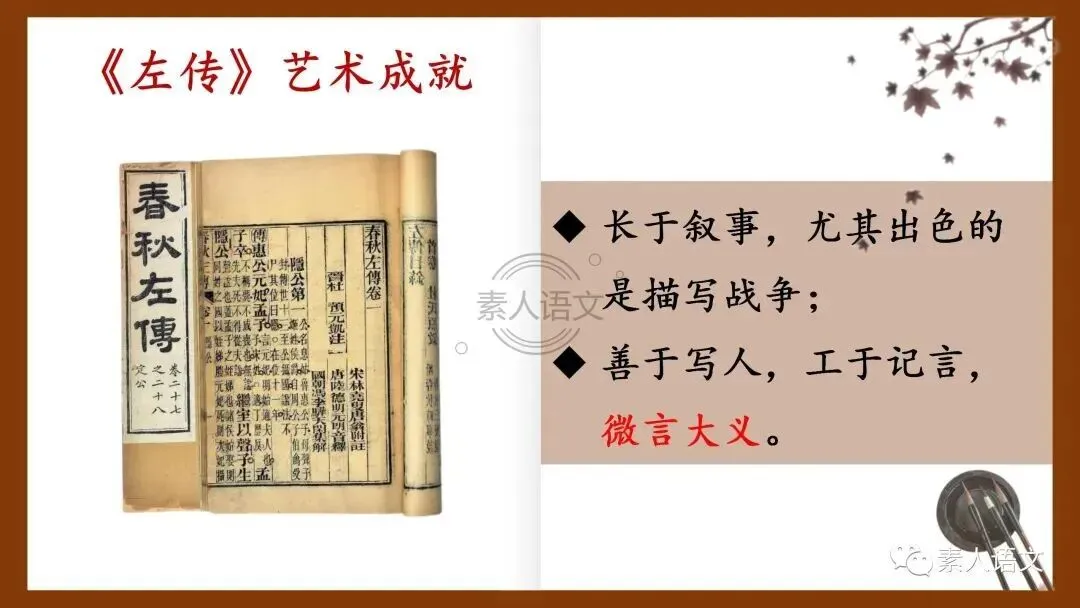 《左传》艺术成就
春秋左傳
卷二十七
之二十八
定公
春秋左傳卷一
晉杜 預元凱注
宋林堯叟唐翁附註
唐陸德明元朗音釋
國朝馮李驊天閑集解
隱公第一
傳惠公元妃孟子
繼室以聲子生
素人语文
◆ 长于叙事，尤其出色的
是描写战争；
◆ 善于写人，工于记言，
微言大义。
素人语文